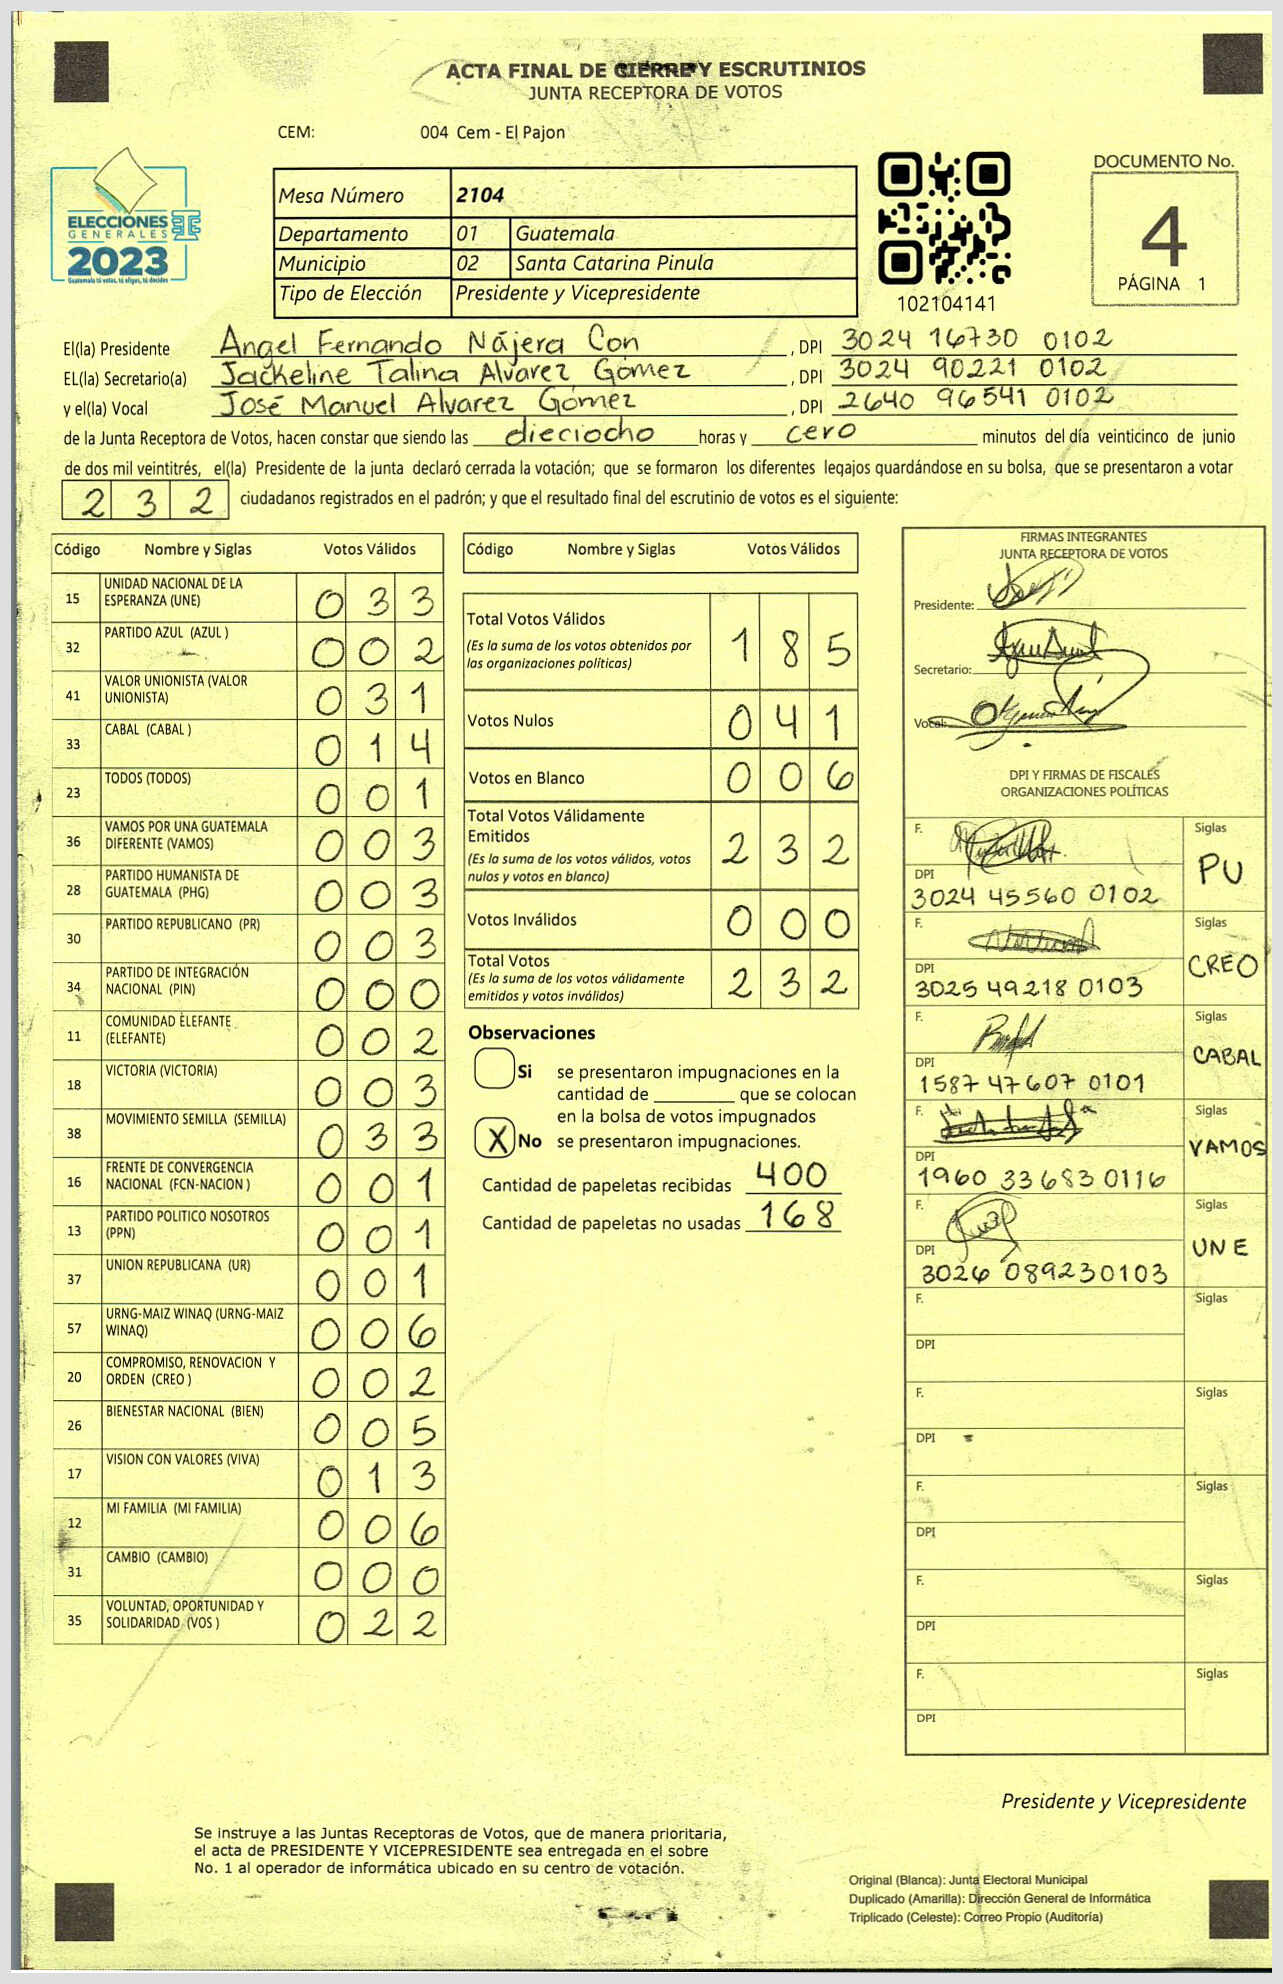 ACTA FINAL DE CIERRE Y ESCRUTINIOS
JUNTA RECEPTORA DE VOTOS
CEM: 004 Cem - El Pajon
ELECCIONES
GENERALES
2023
Guatemala tú votas, tú eliges, tú decides
Mesa Número 2104
Departamento 01 Guatemala
Municipio 02 Santa Catarina Pinula
Tipo de Elección Presidente y Vicepresidente
102104141
DOCUMENTO No.
4
PÁGINA 1
El(la) Presidente Angel Fernando Nájera Con , DPI 3024 16730 0102
EL(la) Secretario(a) Jackeline Talina Alvarez Gómez , DPI 3024 90221 0102
y el(la) Vocal José Manuel Alvarez Gómez , DPI 2640 96541 0102
de la Junta Receptora de Votos, hacen constar que siendo las dieciocho horas y cero minutos del día veinticinco de junio
de dos mil veintitrés, el(la) Presidente de la junta declaró cerrada la votación; que se formaron los diferentes legajos quardándose en su bolsa, que se presentaron a votar
232 ciudadanos registrados en el padrón; y que el resultado final del escrutinio de votos es el siguiente:
Código Nombre y Siglas Votos Válidos
15 UNIDAD NACIONAL DE LA ESPERANZA (UNE) 033
32 PARTIDO AZUL (AZUL ) 002
41 VALOR UNIONISTA (VALOR UNIONISTA) 031
33 CABAL (CABAL ) 014
23 TODOS (TODOS) 001
36 VAMOS POR UNA GUATEMALA DIFERENTE (VAMOS) 003
28 PARTIDO HUMANISTA DE GUATEMALA (PHG) 003
30 PARTIDO REPUBLICANO (PR) 003
34 PARTIDO DE INTEGRACIÓN NACIONAL (PIN) 000
11 COMUNIDAD ELEFANTE (ELEFANTE) 002
18 VICTORIA (VICTORIA) 003
38 MOVIMIENTO SEMILLA (SEMILLA) 033
16 FRENTE DE CONVERGENCIA NACIONAL (FCN-NACION ) 001
13 PARTIDO POLITICO NOSOTROS (PPN) 001
37 UNION REPUBLICANA (UR) 001
57 URNG-MAIZ WINAQ (URNG-MAIZ WINAQ) 006
20 COMPROMISO, RENOVACION Y ORDEN (CREO ) 002
26 BIENESTAR NACIONAL (BIEN) 005
17 VISION CON VALORES (VIVA) 013
12 MI FAMILIA (MI FAMILIA) 006
31 CAMBIO (CAMBIO) 000
35 VOLUNTAD, OPORTUNIDAD Y SOLIDARIDAD (VOS ) 022
Código Nombre y Siglas Votos Válidos
Total Votos Válidos 185
(Es la suma de los votos obtenidos por
las organizaciones políticas)
Votos Nulos 041
Votos en Blanco 006
Total Votos Válidamente
Emitidos 232
(Es la suma de los votos válidos, votos
nulos y votos en blanco)
Votos Inválidos 000
Total Votos 232
(Es la suma de los votos válidamente
emitidos y votos inválidos)
Observaciones
Si se presentaron impugnaciones en la
cantidad de ________ que se colocan
en la bolsa de votos impugnados
X No se presentaron impugnaciones.
Cantidad de papeletas recibidas 400
Cantidad de papeletas no usadas 168
FIRMAS INTEGRANTES
JUNTA RECEPTORA DE VOTOS
Presidente:
Secretario:
Vocal:
DPI Y FIRMAS DE FISCALES
ORGANIZACIONES POLÍTICAS
F. Siglas
PU
DPI
3024 45560 0102
F. Siglas
CREO
DPI
3025 49218 0103
F. Siglas
CABAL
DPI
1587 47607 0101
F. Siglas
VAMOS
DPI
1960 33683 0116
F. Siglas
UNE
DPI
3026 08923 0103
F. Siglas
DPI
F. Siglas
DPI
F. Siglas
DPI
F. Siglas
DPI
F. Siglas
DPI
Presidente y Vicepresidente
Se instruye a las Juntas Receptoras de Votos, que de manera prioritaria,
el acta de PRESIDENTE Y VICEPRESIDENTE sea entregada en el sobre
No. 1 al operador de informática ubicado en su centro de votación.
Original (Blanca): Junta Electoral Municipal
Duplicado (Amarilla): Dirección General de Informática
Triplicado (Celeste): Correo Propio (Auditoría)